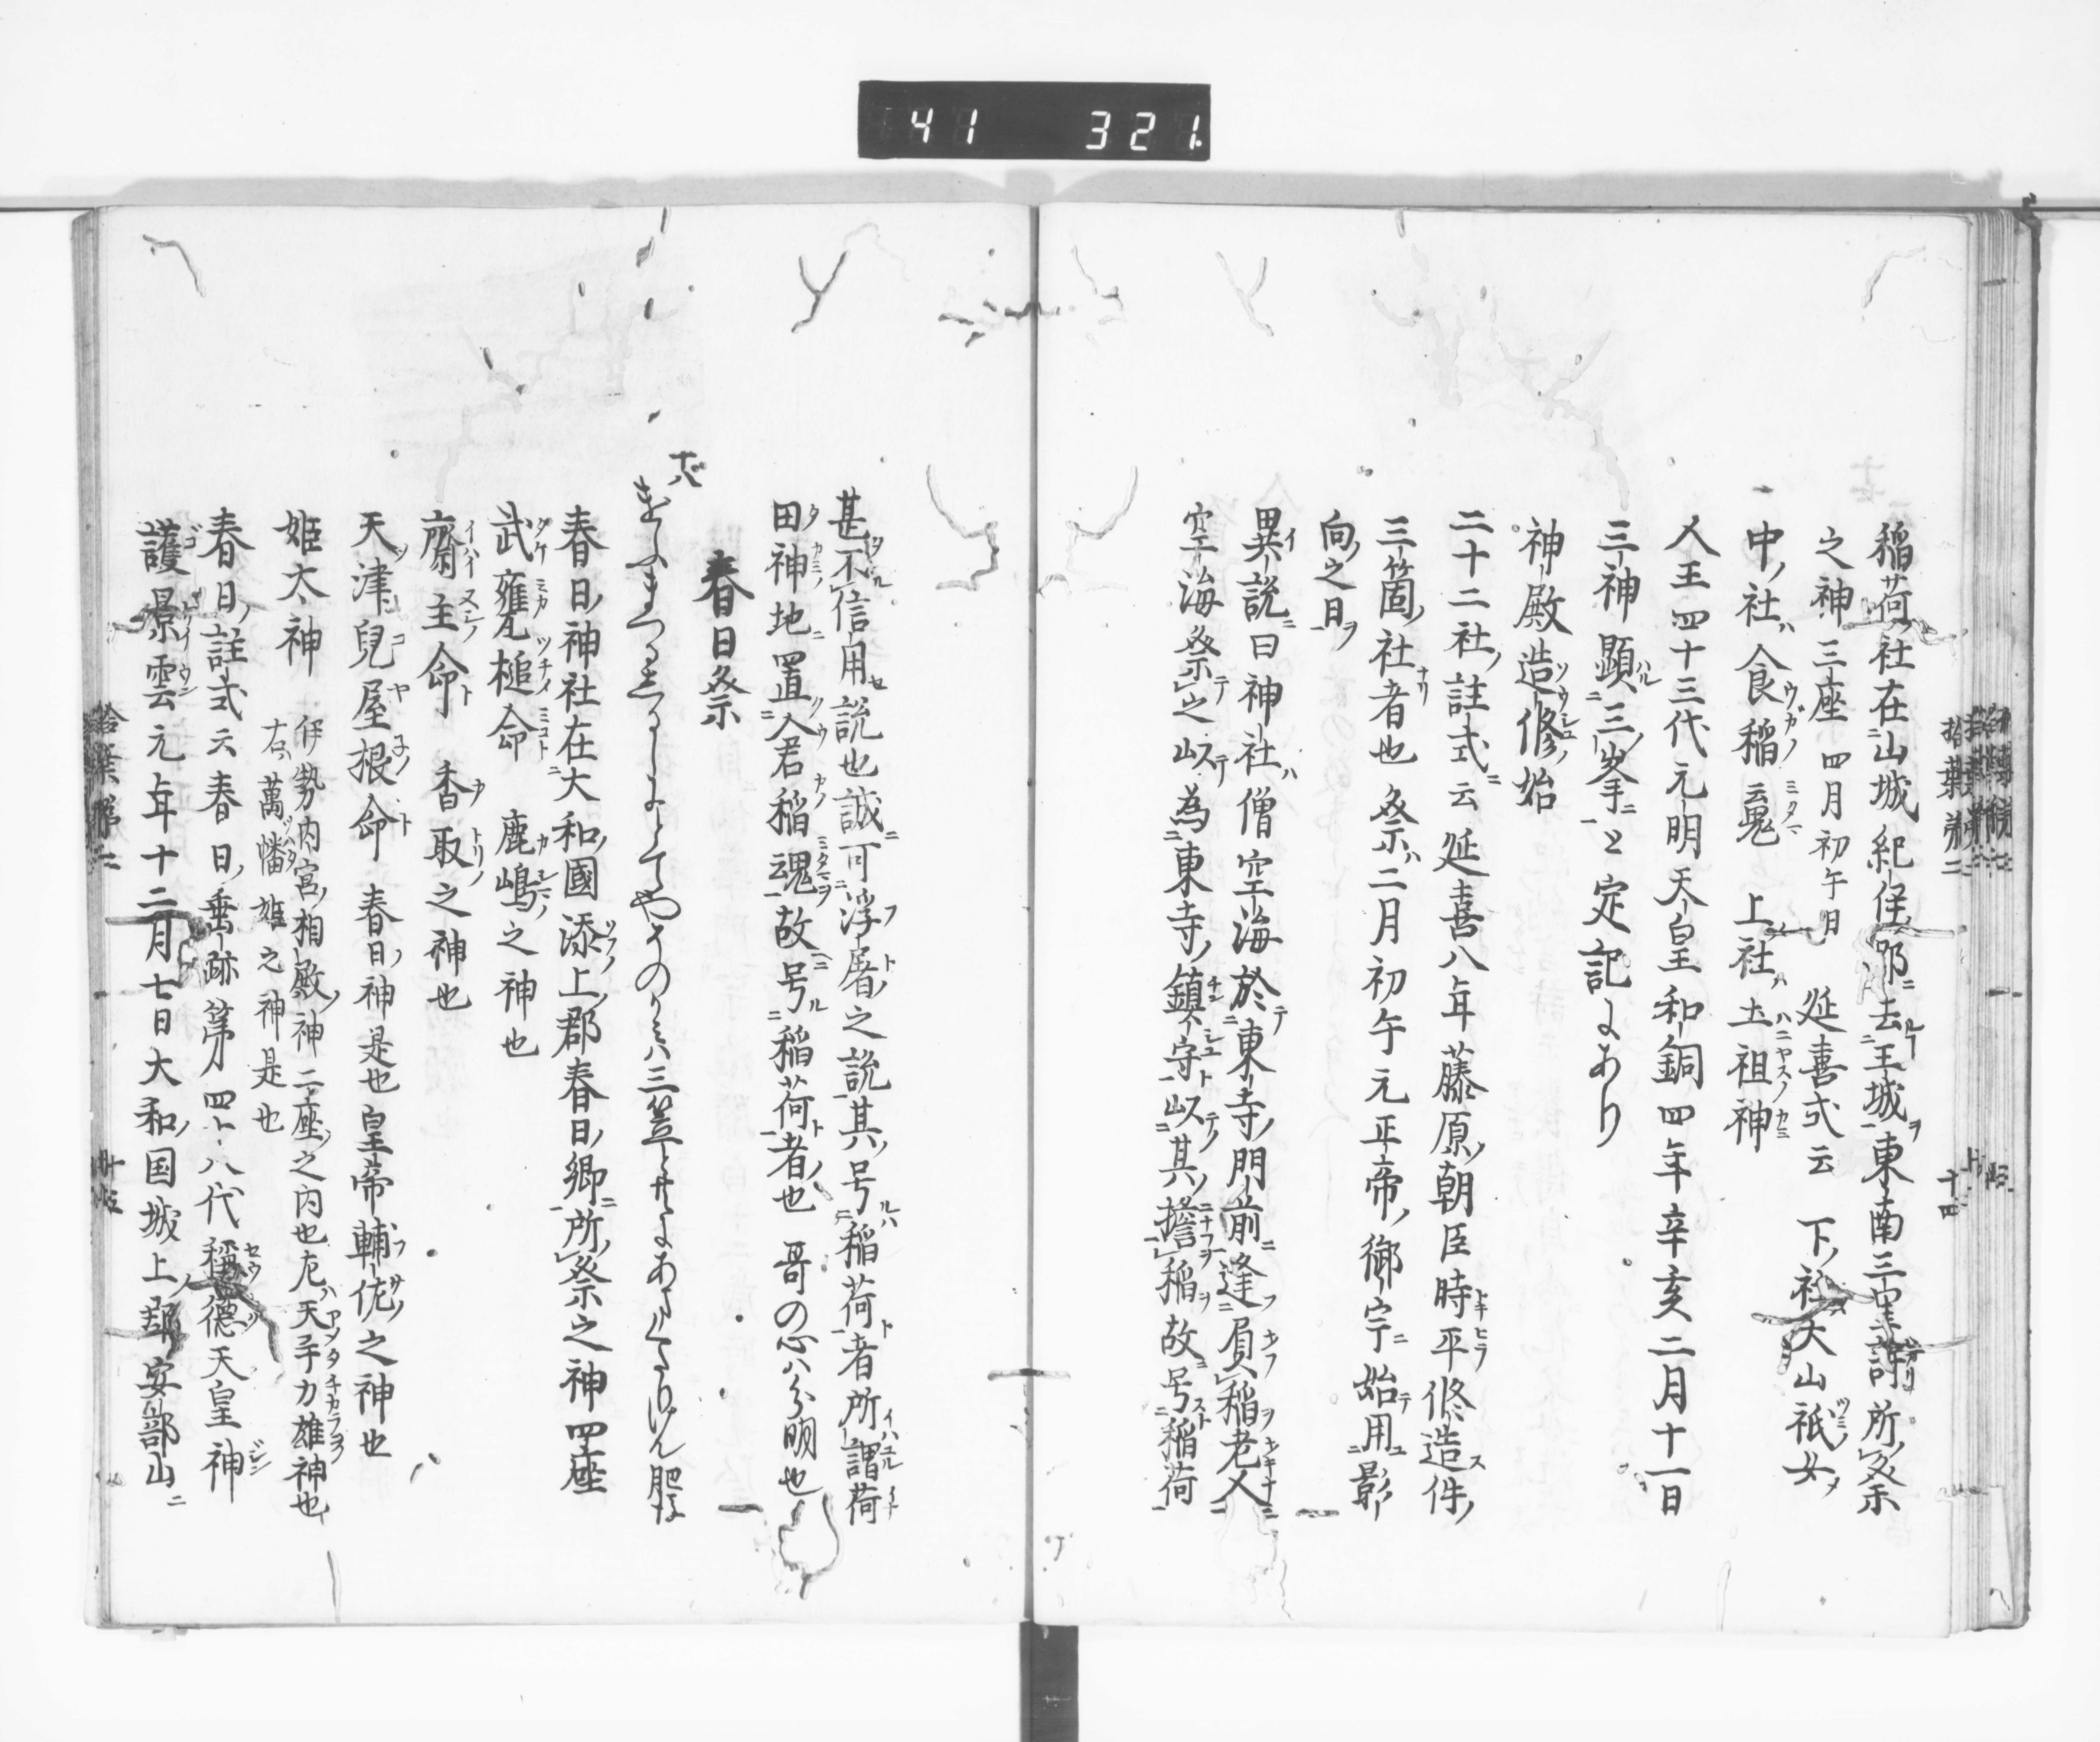 41 321
稲荷社在山城紀伊郡去王城東南三里許所祭
之神三座 四月初午日 延喜式云 下社大山祇女
中社食稲䰟 上社土祖神
人王四十三代元明天皇和銅四年辛亥二月十一日
三神顕三峯と定記にあり
神殿造修始
二十二社註式云延喜八年藤原朝臣時平修造件
三箇社者也祭ハ二月初午元正帝御宇始用影
向之日
異説曰神社僧空海於東寺門前逢負稲老人
空海祭之以為東寺鎮守以其擔稲故号稲荷
甚不信用説也誠可浮屠之説其号稲荷者所謂荷
田神地置人君稲魂故号稲荷者也 哥の心ハ分明也
春日祭
春日神社在大和國添上郡春日郷所祭之神四座
武雍瓦槌命 鹿嶋之神也
齋主命 香取之神也
天津兒屋根命 春日神是也皇帝輔佐之神也
姫太神
伊勢内宮相殿神二座之内也左ハ天手力雄神也
右ハ萬幡姫之神是也
春日註式云春日垂跡第四十八代稱德天皇神
護景雲元年十二月七日大和国城上郡安部山